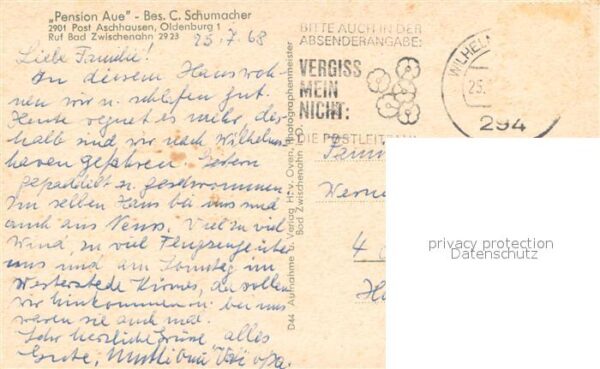 „Pension Aue" - Bes. C. Schumacher
2901 Post Aschhausen, Oldenburg 1
Ruf Bad Zwischenahn 2923
25.7.68
Liebe Familie!
In diesem Haus woh-
nen wir u. schlafen gut.
Heute regnet es mehr, des-
halb sind wir nach Wilhelms
haven gefahren. Gestern
gepaddelt u. geschwommen
Im selben Haus bei uns sind
auch aus Neuss. Viel zu viel
Wind, zu viel Flugzeuge übe
uns und am Sonntag im
Westerstede Kirmes, da sollen
wir hinkommen u. bei uns
waren sie auch mal.
Sehr herzliche Grüsse alles
Gute, Mutti Omi Opa.
D44 Aufnahme u. Verlag H. v. Oven, Photographenmeister
Bad Zwischenahn i. O.
BITTE AUCH IN DER
ABSENDERANGABE:
VERGISS
MEIN
NICHT:
DIE POSTLEITZAHL
WILHELM
25.
294
Famil
Werne
4
privacy protection
Datenschutz